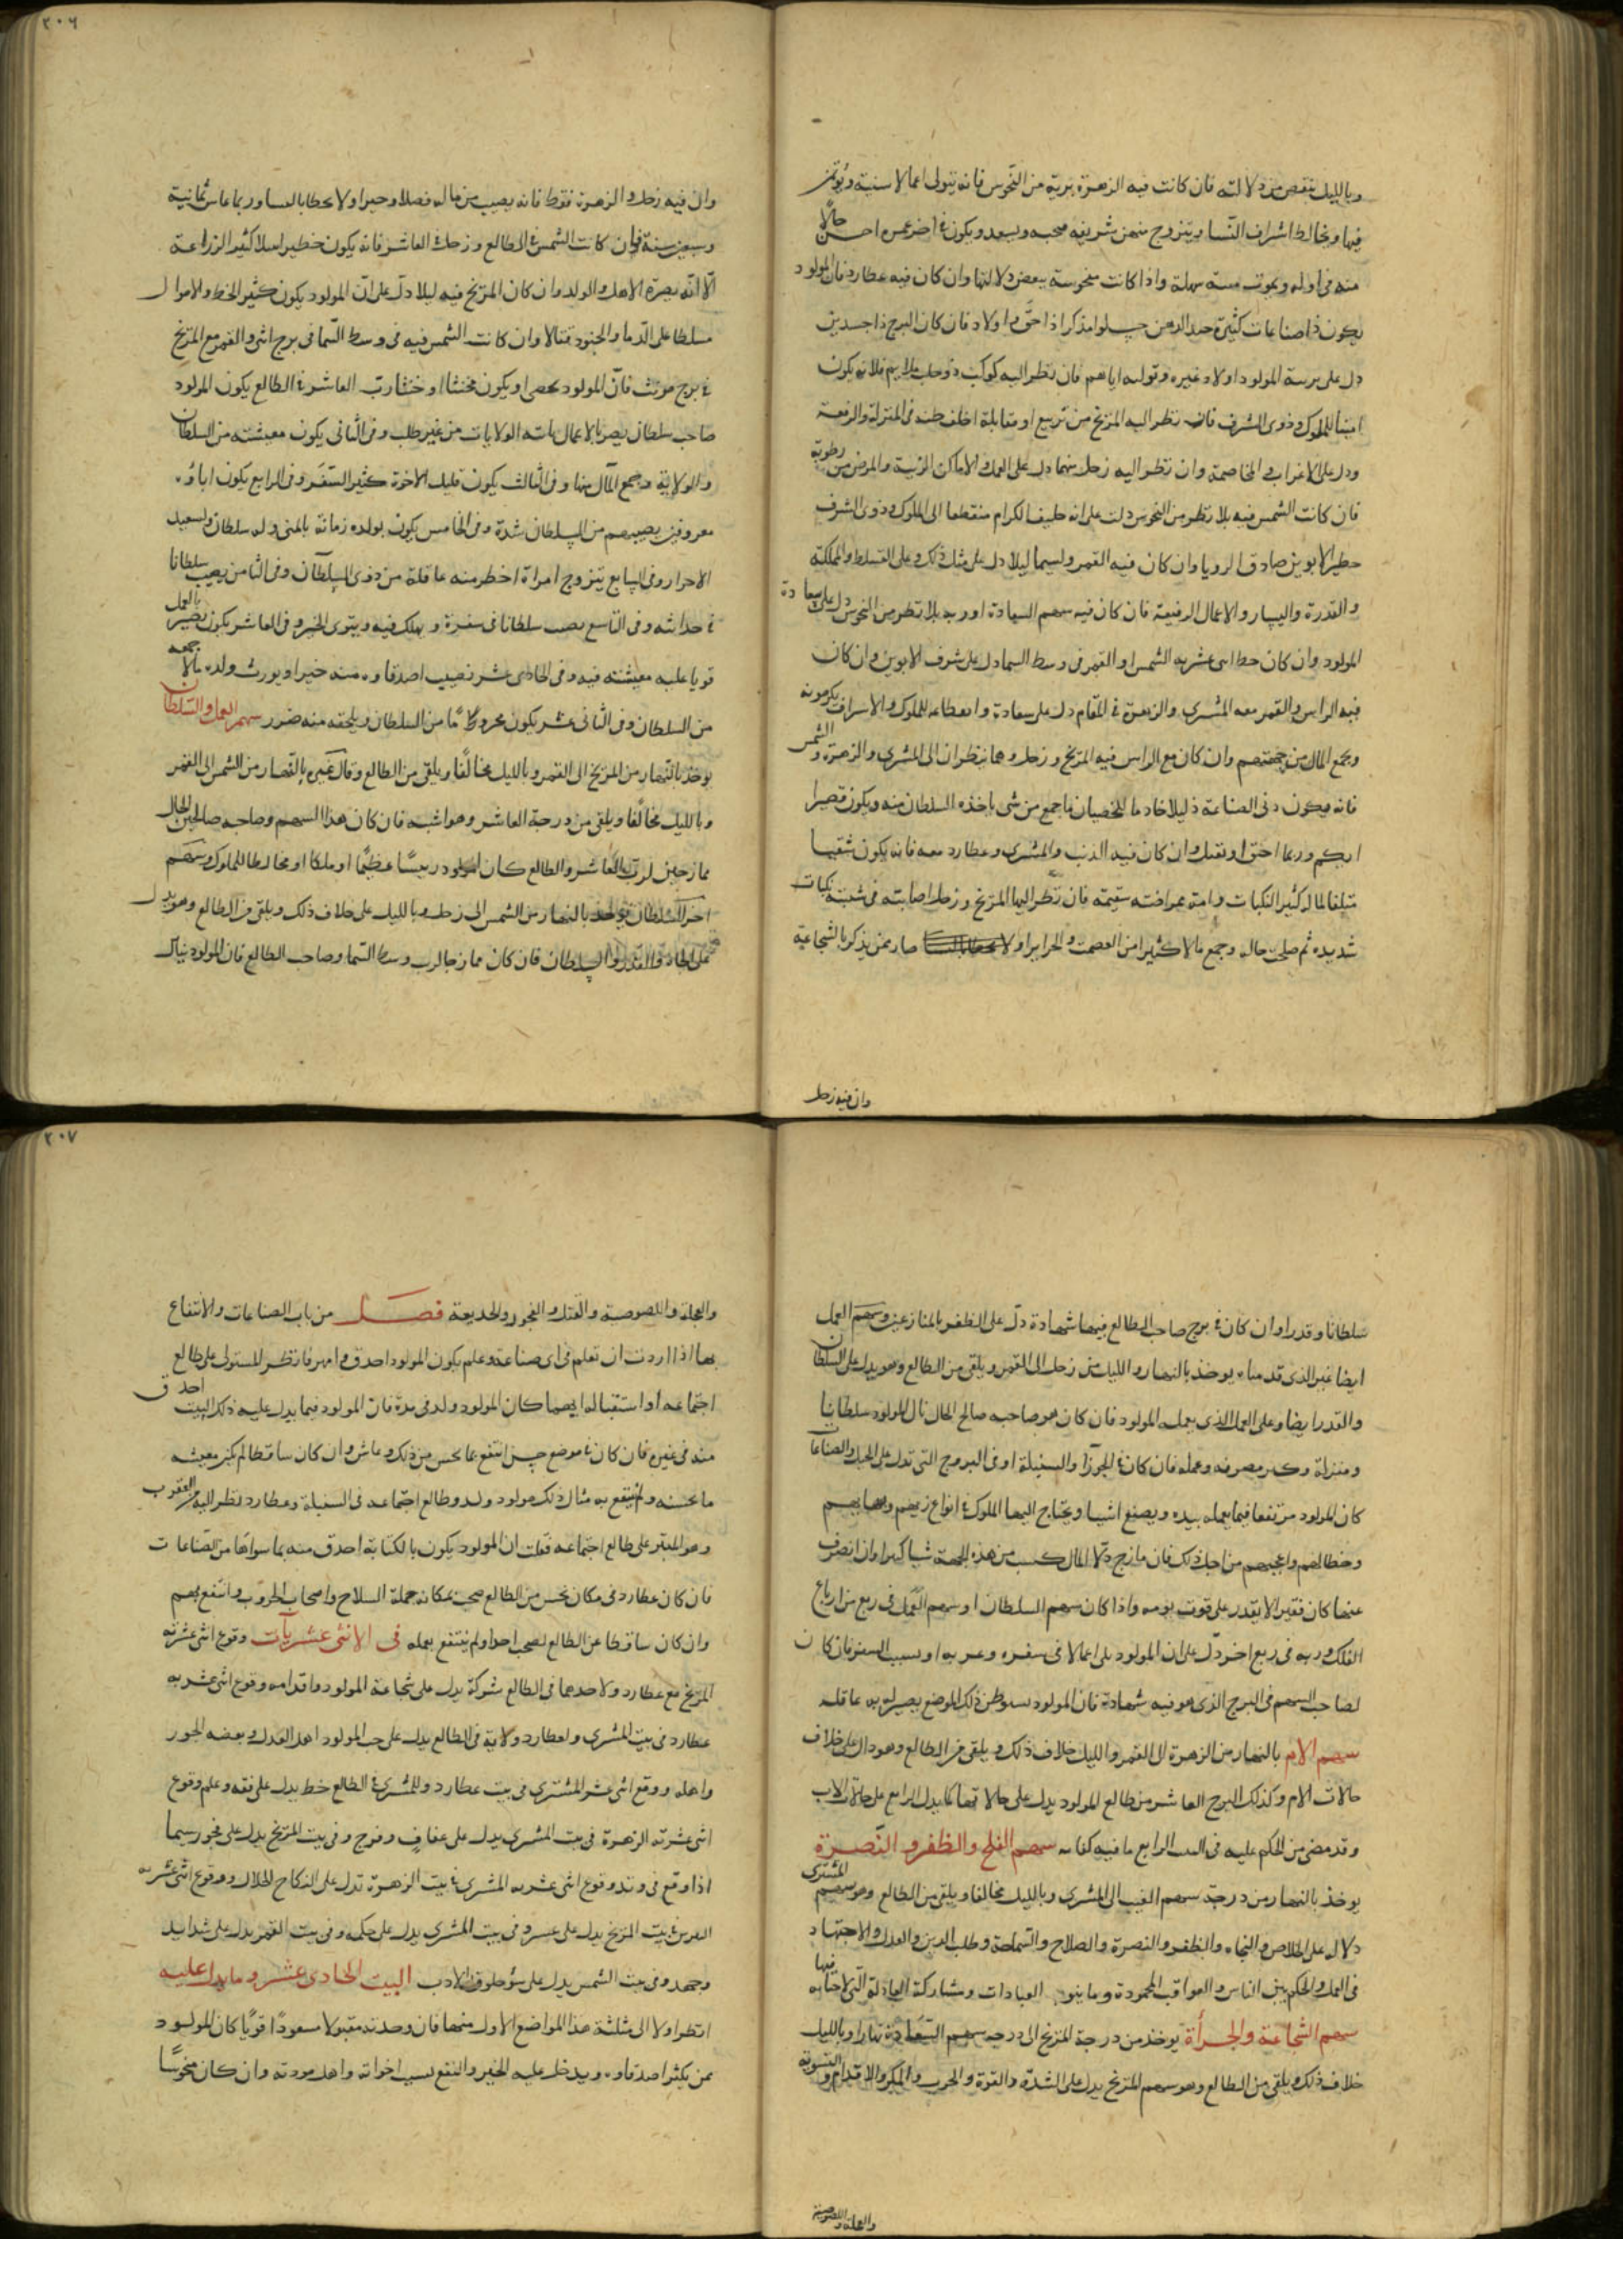 وبالليل ينقص من دلالته فان كانت فيه الزهرة برية من النحوس فانه يتولى اعمالا سنية ويؤتمن
فيها ويخالط اشراف النسا ويتزوج منهن شريفه محبه ويسعد ويكون في اخر عمره احسن حالًا
منه في اوله ويموت ميتة سهلة واذا كانت منحوسة ببعض دلالتها وان كان فيه عطارد فان المولود
يكون ذا صناعات كثيرة جيد الذهن حسـ لو اولاد فان كان البرج ذا جسدين
دل على تربية المولود اولاد غيره وتوليه اياهم فان نظر اليه كوكب ذو حلب ملايم فلانه يكون
امينا للملوك وذوى الشرف فان نظر اليه المريخ من تربيع او مقابلة اخلف ظنه فى المنزلة والرفعة
ودل على الاغراب فى المخاصمة وان نظر اليه زحل منهما دل على العمل فى الاماكن الندية والمرض من رطوبة
فان كانت الشمس فيه بلا نظر من النحوس دلت على انه حليف الكرام منقطعا الى الملوك وذوى الشرف
خطير الابوين صادق الرويا وان كان فيه القمر ولسيما ليلا دل على مثل ذلك وعلى التسلط والمملكة
والقدرة واليسار والاعمال الرفيعة فان كان فيه سهم السعادة او ربه بلا نظر من النحوس دل على سعادة
المولود وان كان حط اثنى عشرية الشمس او القمر فى وسط السما دل على شرف الابوين وان كان
فيه الراس والقمر معه المشترى والزهرة فى المقام دل على سعادة وانقطاعه للملوك والاشراف يكرمونه
ويجمع المال من جهتهم وان كان مع الراس فيه المريخ وزحل وهما ينظران الى المشترى والزهرة والشمس
فانه يكون دنى الصناعة ذليلا خادما للخصيان ما جمع من شى ياخذه السلطان منه ويكون قصيرا
ابكم وربما احترق او تقتل وان كان فيه الذنب والمشترى وعطارد معه فانه يكون شقيا
متلفا لماله كثير النكبات وامته عمرافته سقيمة فان نظر اليها المريخ وزحل اصابته فى شبيبته نكبات
شديده ثم صلحت حاله وجمع مالا كثيرا من العصمت والحراير اولا صار ممن يذكر بالشجاعة
وان فيه زحل
٢٠٦
وان فيه زحل والزهرة فقط فانه يصيب من ماله فضلا وخيرا ولا يحظا بالنسا وربما عاش ثمانية
وسبعين سنة فان كانت الشمس فى الطالع وزحل فى العاشر فانه يكون خطيرا نبيلا كثير الزراعة
الّا انّه بضرة الاهل والولد وان كان المريخ فيه ليلا دلّ على انّ المولود يكون كثير الخط والاموال
مسلطا على الدّما والجنود قتالا وان كانت الشمس فيه فى وسط السّما فى برج انثى والقمر مع المريخ
فى برج مونث فانّ المولود يخصى او يكون مخنثا او خنثا ربّ العاشر فى الطالع يكون المولود
صاحب سلطان بصيرا بالاعمال تاته الولايات من غير طلب وفى الثانى يكون معيشته من السلطان
والولاية وجمع المال منها وفى الثالث يكون قليل الاخوة كثير السّفر وفى الرابع يكون اباؤه
معروفين يصيبهم من السلطان شدة وفى الخامس يكون بولده زمانة بالمنى وله سلطان ولسعيد
الاحرار وفى السابع يتزوج امراة اخطر منه عاقلة من ذوى السلطان وفى الثامن يصيب سلطانا
فى حداثته وفى التاسع يصيب سلطانا فى سفرة ويهلك فيه وينوى الخير وفى العاشر يكون بصيرا بالعمل
قويا عليه معيشته فيه وفى الحادى عشر نصيب اصدقاوه منه خيرا ويورث ولده مالًا جمعه
من السلطان وفى الثانى عشر يكون محروما من السلطان ويلحقه منه ضرر سهم العمل والسّلطان
يوخذ بالنّهار من المريخ الى القمر وبالليل مخالفًا ويلقى من الطالع وقال غيره بالنهار من الشمس الى القمر
وبالليل مخالفًا ويلقى من درجة العاشر وهو اشبه فان كان هذا السهم وصاحبه صالحين الحال
ممازجين لربّ العاشر والطالع كان المولود رييسًا عظيمًا او ملكا او مخالطا للملوك وسهم
اخر للسّلطان يؤخذ بالنهار من الشمس الى زحل وبالليل على خلاف ذلك ويلقى من الطالع وهو يدل
على والقدر والسلطان فان كان ممازجا لرب وسط السّما وصاحب الطالع فان المولود ينال
سلطانا وقدرا وان كان فى برج صاحب الطالع فيهما شهادة دلّ على الظفر بالمنازعين وسهم العمل
ايضا غير الذى قدمناه يوخذ بالنهار والليل من زحل الى القمر ويلقى من الطالع وهو يدل على السلطان
والقدر ايضا وعلى العمل الذى يعمله المولود فان كان هو صاحبه صالح الحال نال المولود سلطانا
ومنزلة وكبر مصرفه وعمله فان كان فى الجوزا والسنبلة او فى البروج التى تدل على الحيل والصناعات
كان المولود مرتفعا فيما يعمله بيده ويصنع اشيا ويحتاج اليها الملوك فى انواع زيهم
وخطالهم واعجبهم من اجل ذلك فان مازج دلّ المال كسب من هذه الجهة شيا كبيرا وان انصرف
عنها كان فقيرا لا يقدر على قوت يومه واذا كان سهم السلطان او سهم العمل فى ربع من ارباع
الفلك وربه فى ربع اخر دلّ على ان المولود يلى اعمالا فى سفره وغربه او بسبب السفر فان كان
لصاحب السهم فى البرج الذى هو فيه شهادة فان المولود ستوطن ذلك الموضع بصير له به عاقله
سهم الام بالنهار من الزهرة الى القمر والليل خلاف ذلك ويلقى من الطالع وهو دال على خلاف
حالات الام وكذلك البرج العاشر من طالع المولود يدل على حالاتها كما يدل الرابع على حالات الاب
وقد مضى من الحكم عليه فى البيت الرابع ما فيه كفايه سهم الفلج والظفر والنّصرة
يوخذ بالنهار من درجة سهم الغيب الى المشترى وبالليل مخالفا ويلقى من الطالع وهو سهم المشترى
دلاله على الخلاص والنجاه والظفر والنصرة والصلاح والسّماحة وطلب الدين والعدل والاجتهاد
فى العمل والحكم بين الناس والعواقب المحمودة وما ينوب العبادات ومشاركة العادلة التى لاخيابه فيها
سهم الشجاعة والجرأة يوخذ من درجة المريخ الى درجه سهم السّعادة نهارا وبالليل
خلاف ذلك ويلقى من الطالع وهو سهم المريخ يدل على الشدّة والقوة والحرب والمكر والاقدام والقسوة
والعجلة واللصوصية
٢٠٧
والعجلة واللصوصية والقتل والفجور والخديعة فصل من باب الصناعات والانتفاع
بها اذا اردت ان تعلم فى اى صناعة وعلم يكون المولود احدق وامهر فانظر المستولى على طالع
اجتماعه او استقباله ايهما كان المولود ولد فى مدة فان المولود فيما يدل عليه ذلك البيت احدق
منه فى غيره فان كان فى موضع جيد انتفع بما يحسن من ذلك وعاش وان كان ساقطا لم يكن معيشه
ما يحسنه ولم ينتفع به مثال ذلك مولود ولد وطالع اجتماعه فى السنبلة وعطارد نظر اليه من العقرب
وهو المبتز على طالع اجتماعه فقلت ان المولود يكون بالكتابة احدق منه بما سواها من الصّناعات
فان كان عطارد فى مكان نحس من الطالع صحب بمكانه حملة السلاح واصحاب الحروب وانتفع بهم
وان كان ساقطا عن الطالع لصحب احوا ولم ينتفع بعمله فى الاثنى عشريات وقوع اثنى عشرته
المريخ مع عطارد ولاحدهما فى الطالع شركة يدل على شجاعة المولود واقدامه وقوع اثنى عشريه
عطارد فى بيت المشترى ولعطارد ولاية فى الطالع يدل على حب المولود اهل العدل وبعضه الجور
واهله ووقع اثنى عشر المشترى فى بيت عطارد وللمشترى فى الطالع خط يدل على فقه وعلم وقوع
اثنى عشرته الزهرة فى بيت المشترى يدل على عفاف وفرح وفى بيت المريخ يدل على فجور سيما
اذا وقع فى وتد وقوع اثنى عشريه المشترى فى بيت الزهرة تدل على النكاح الحلال ووقوع اثنى عشريه
فى بيت المريخ يدل على عسر وفى بيت المشترى يدل على حكمه وفى بيت القمر يدل على شدايد
وجهد وفى بيت الشمس يدل على سؤ خلوق الادب البيت الحادى عشر وما يدل عليه
انظر اولا الى مثلثة هذا المواضع الاول منها فان وجدته مقبولا مسعودًا قويًا كان المولود
ممن يكثر اصدقاوه ويدخل عليه الخير والنفع بسبب اخواته واهل مودته وان كان منحوسًا